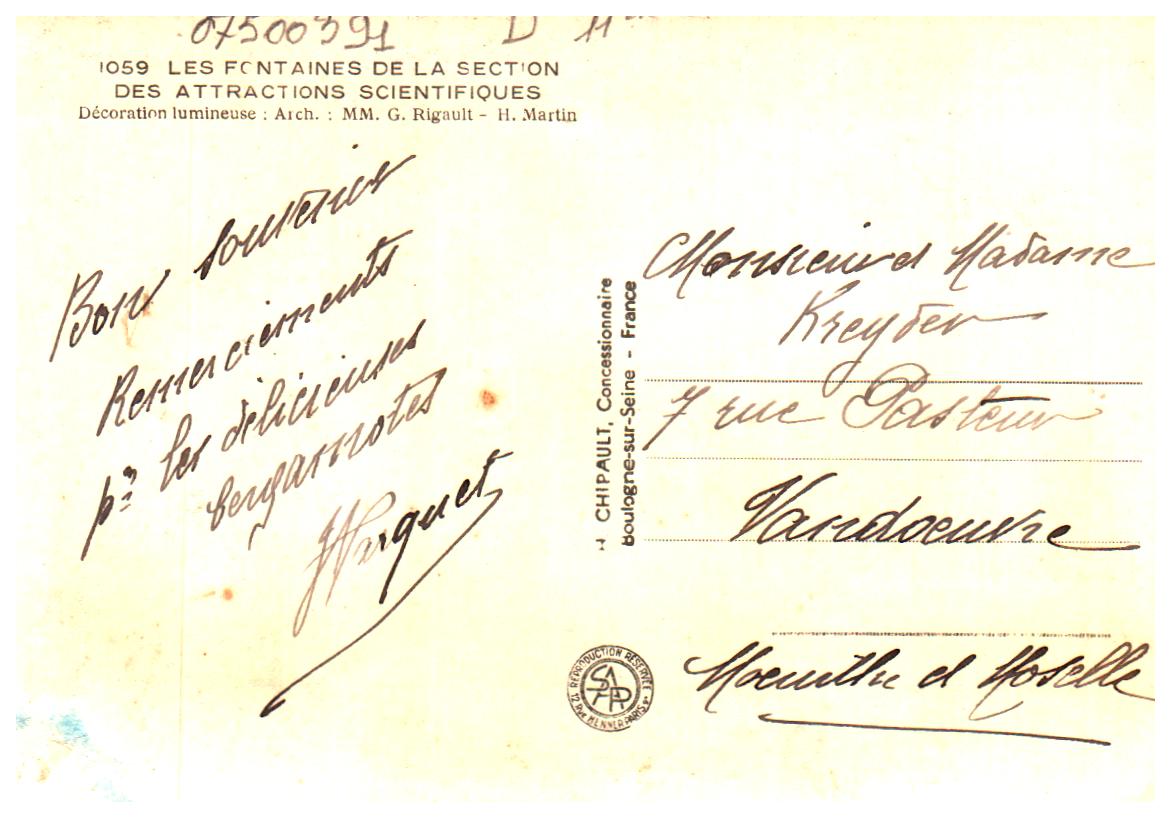 07500391 D 11
1059 LES FONTAINES DE LA SECTION
DES ATTRACTIONS SCIENTIFIQUES
Décoration lumineuse : Arch. : MM. G. Rigault - H. Martin
Bon souvenir
Remerciements
pr les délicieuses
bergamotes
CHIPAULT, Concessionnaire
Boulogne-sur-Seine - France
Monsieur et Madame
Kreyder
7 rue Pasteur
Vandoeuvre
Meurthe et Moselle
REPRODUCTION RÉSERVÉE
SAPR
12 Rue HENNER PARIS 9e